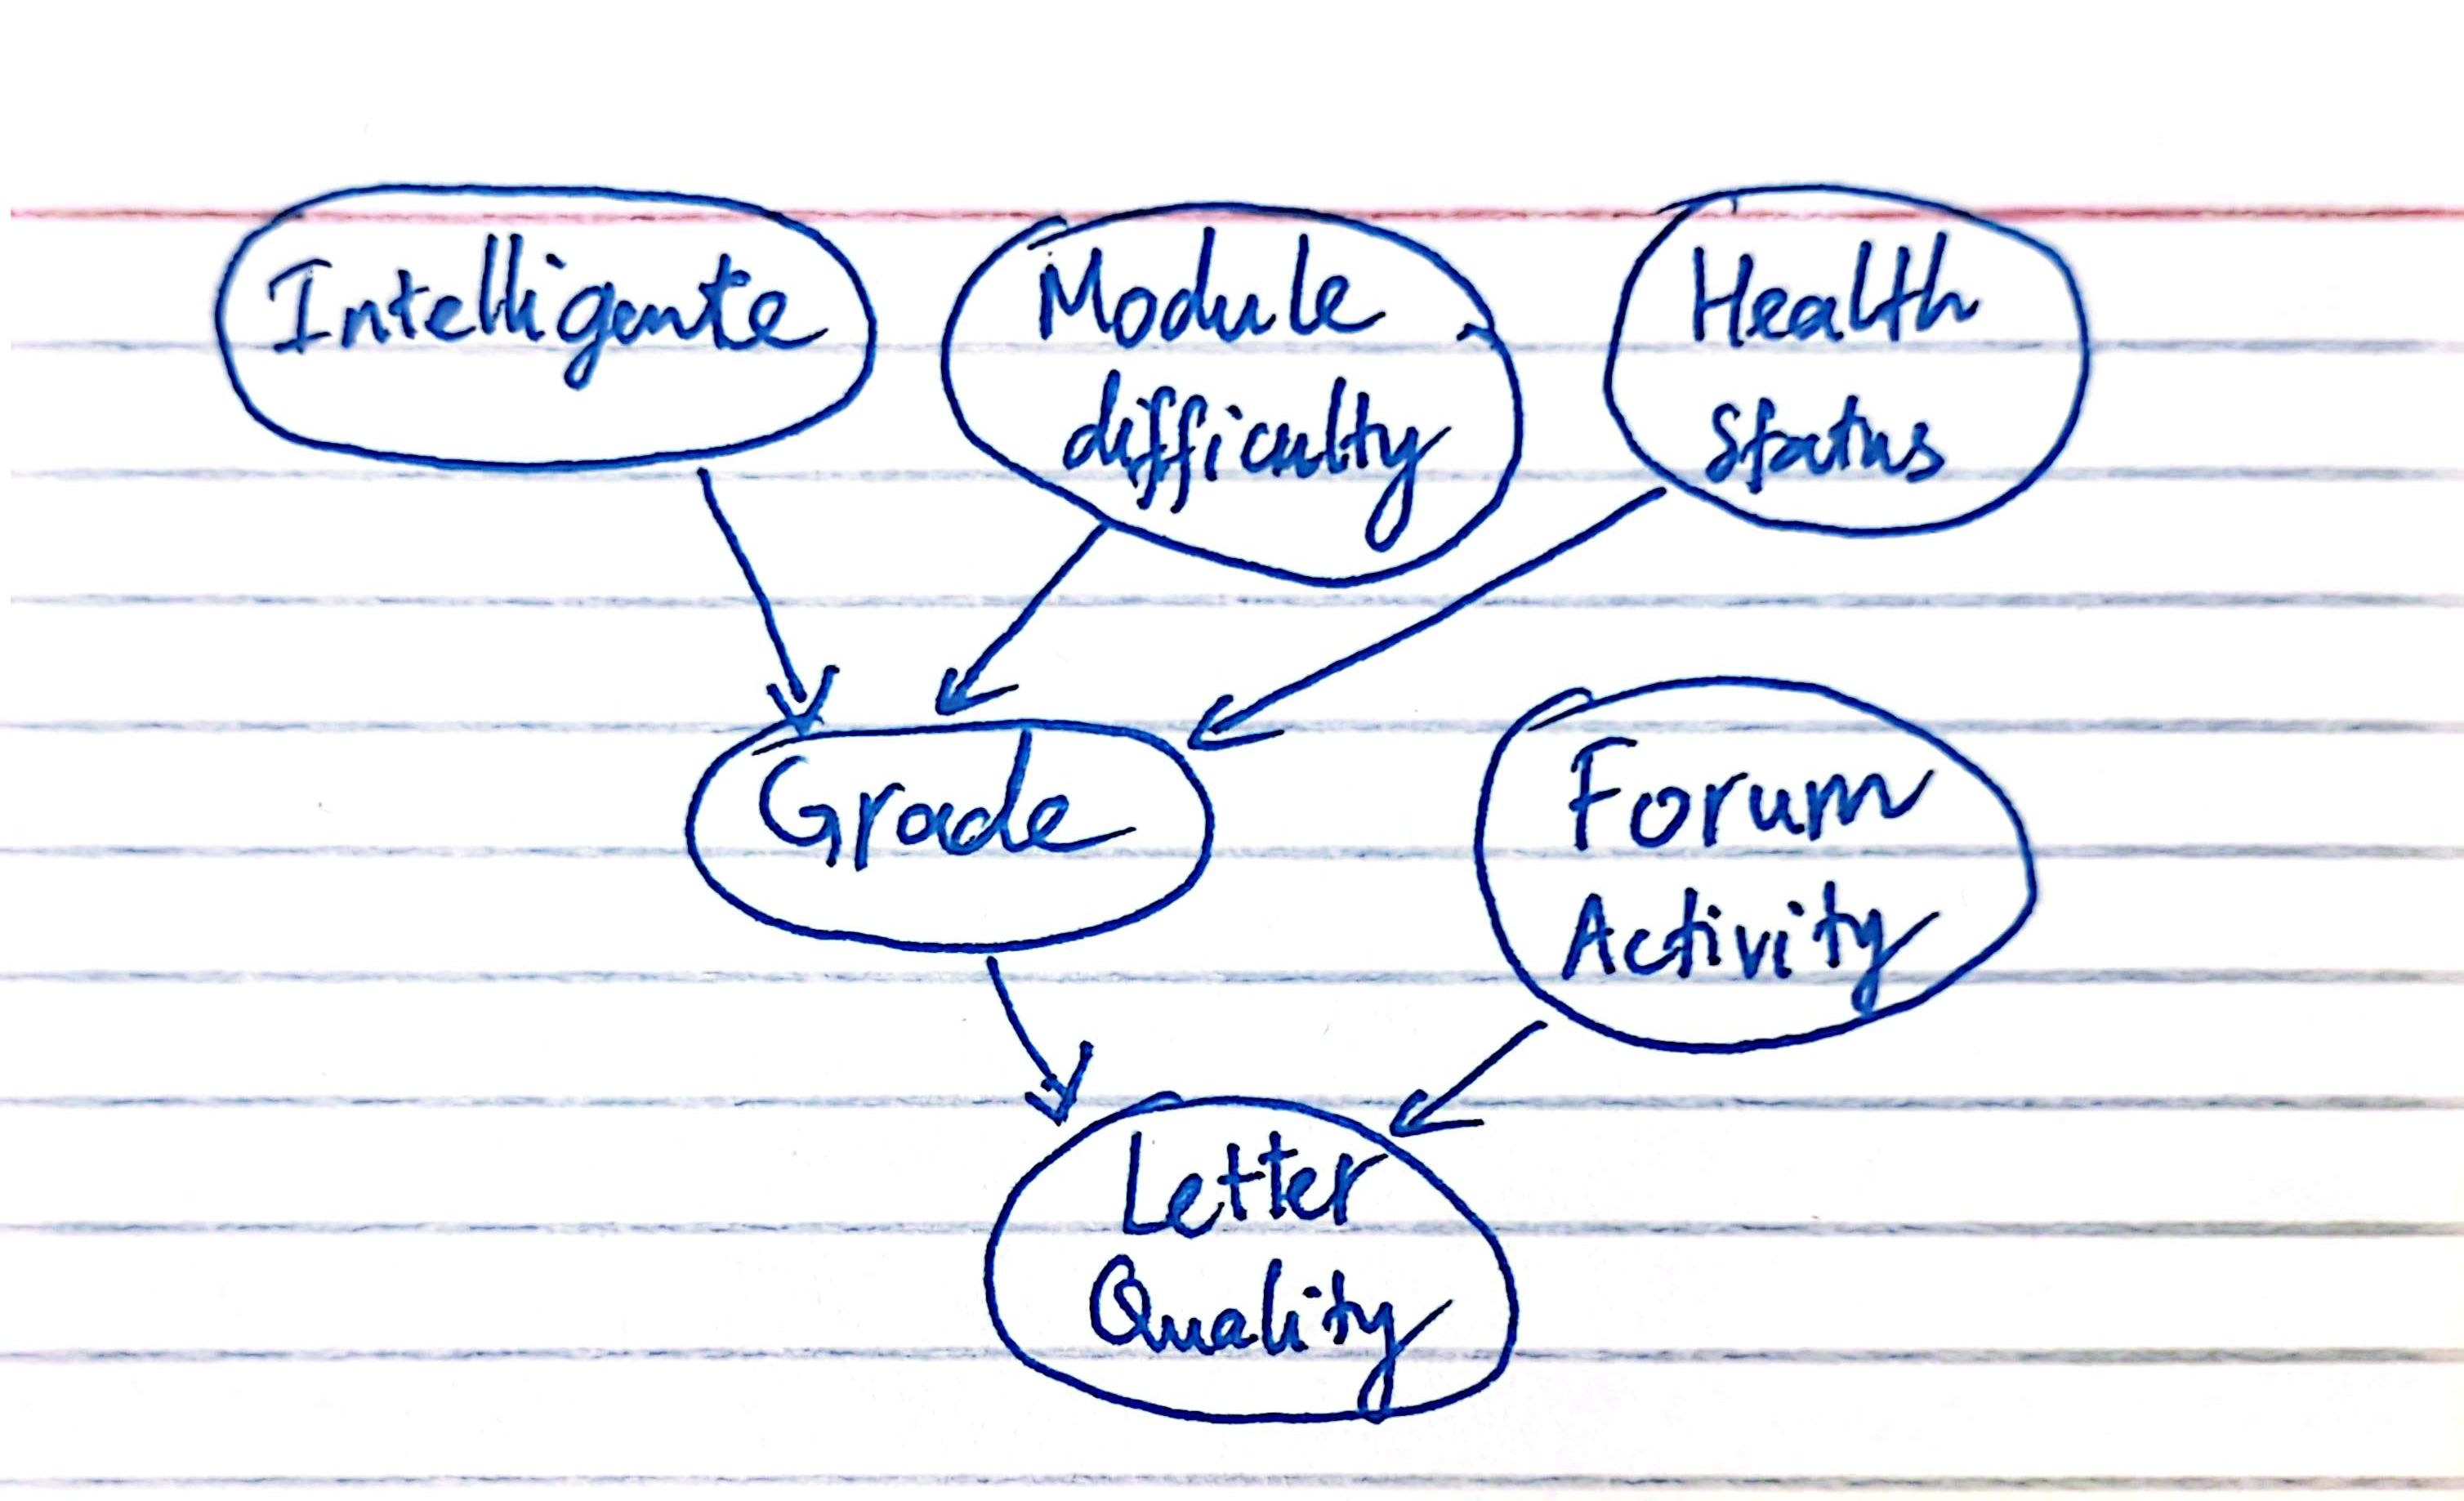 Intelligente
Module
difficulty
Health
Status
Grade
Forum
Activity
Letter
Quality